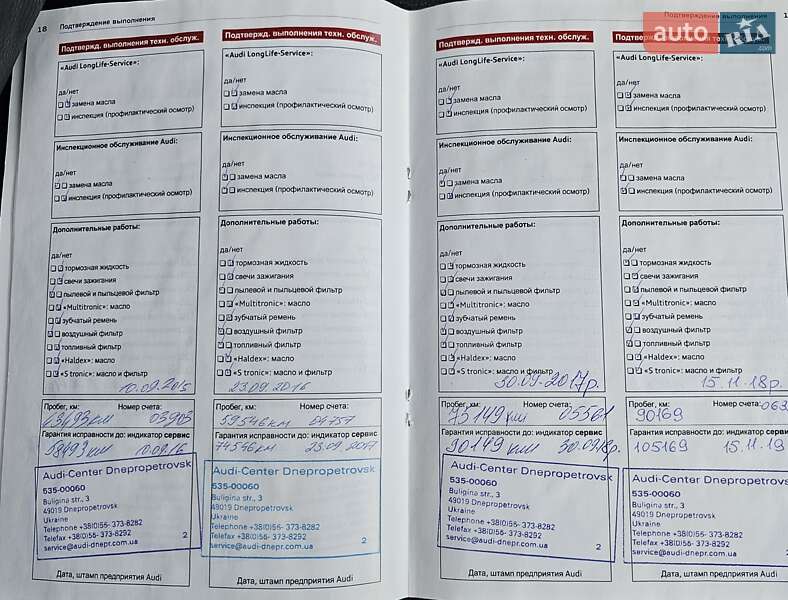 18 Подтверждение выполнения
Подтвержд. выполнения техн. обслуж.
«Audi LongLife-Service»:
да/нет
замена масла
инспекция (профилактический осмотр)
Инспекционное обслуживание Audi:
да/нет
замена масла
инспекция (профилактический осмотр)
Дополнительные работы:
да/нет
тормозная жидкость
свечи зажигания
пылевой и пыльцевой фильтр
«Multitronic»: масло
зубчатый ремень
воздушный фильтр
топливный фильтр
«Haldex»: масло
«S tronic»: масло и фильтр
10.09.2015
Пробег, км: Номер счета:
05905
Гарантия исправности до: индикатор сервис
10.09.16
Audi-Center Dnepropetrovsk
535-00060
Buligina str., 3
49019 Dnepropetrovsk
Ukraine
Telephone +38(0)56- 373-8282
Telefax +38(0)56- 373-8292
service@audi-dnepr.com.ua 2
Дата, штамп предприятия Audi
Подтвержд. выполнения техн. обслуж.
«Audi LongLife-Service»:
да/нет
замена масла
инспекция (профилактический осмотр)
Инспекционное обслуживание Audi:
да/нет
замена масла
инспекция (профилактический осмотр)
Дополнительные работы:
да/нет
тормозная жидкость
свечи зажигания
пылевой и пыльцевой фильтр
«Multitronic»: масло
зубчатый ремень
воздушный фильтр
топливный фильтр
«Haldex»: масло
«S tronic»: масло и фильтр
23.09.2016
Пробег, км: Номер счета:
59546км 04757
Гарантия исправности до: индикатор сервис
74546км 23.09.2017
Audi-Center Dnepropetrovsk
535-00060
Buligina str., 3
49019 Dnepropetrovsk
Ukraine
Telephone +38(0)56- 373-8282
Telefax +38(0)56- 373-8292
service@audi-dnepr.com.ua 2
Дата, штамп предприятия Audi
Подтвержд. выполнения техн. обслуж.
«Audi LongLife-Service»:
да/нет
замена масла
инспекция (профилактический осмотр)
Инспекционное обслуживание Audi:
да/нет
замена масла
инспекция (профилактический осмотр)
Дополнительные работы:
да/нет
тормозная жидкость
свечи зажигания
пылевой и пыльцевой фильтр
«Multitronic»: масло
зубчатый ремень
воздушный фильтр
топливный фильтр
«Haldex»: масло
«S tronic»: масло и фильтр
30.09-2017р.
Пробег, км: Номер счета:
75149км 05561
Гарантия исправности до: индикатор сервис
90149 км 30.0918р.
Audi-Center Dnepropetrovsk
535-00060
Buligina str., 3
49019 Dnepropetrovsk
Ukraine
Telephone +38(0)56- 373-8282
Telefax +38(0)56- 373-8292
service@audi-dnepr.com.ua 2
Дата, штамп предприятия Audi
Подтверждение выполнения
auto RIA
.com
«Audi LongLife-Service»:
да/нет
замена масла
инспекция (профилактический осмотр)
Инспекционное обслуживание Audi:
да/нет
замена масла
инспекция (профилактический осмотр)
Дополнительные работы:
да/нет
тормозная жидкость
свечи зажигания
пылевой и пыльцевой фильтр
«Multitronic»: масло
зубчатый ремень
воздушный фильтр
топливный фильтр
«Haldex»: масло
«S tronic»: масло и фильтр
15.11-18р.
Пробег, км: Номер счета:
90169 063
Гарантия исправности до: индикатор сервис
105169 15.11.19
Audi-Center Dnepropetrovs
535-00060
Buligina str., 3
49019 Dnepropetrovsk
Ukraine
Telephone +38(0)56- 373-8282
Telefax +38(0)56- 373-8292
service@audi-dnepr.com.ua 2
Дата, штамп предприятия Audi